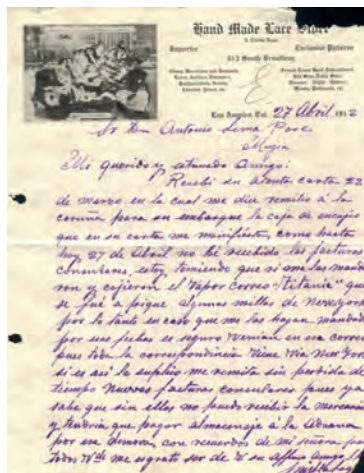 Hand Made Lace Store
Importer
Exclusive Patterns
513 South Broadway
Los Angeles, Cal. 27 Abril 1912
Sr Don Antonio Lema Pose
Mugia
Mi querido y estimado Amigo:
Recibi su atenta carta 22
de marzo en la cual me dice remitio á la
coruña para su embarque la caja de encajes
que en su carta me manifiesta, como hasta
hoy 27 de Abril no hé recibido las facturas
consulares, estoy temiendo que si me las manda
ron y cojieron el vapor correo "Titanic" que
se fué a pique algunas millas de New York
por lo tanto en caso que me las hayan mandado
por esa fecha es seguro venian en ese correo
pues toda la correspondencia viene via New York
si es asi le suplico me remita sin perdida de
tiempo nuevas facturas consulares pues ya
sabe que sin ellas no puedo recibir la mercancia
y tendria que pagar almacenaje á la Aduana
por su demora, con recuerdos de mi señora para
todos Vds me es grato ser de V su affmo Amigo